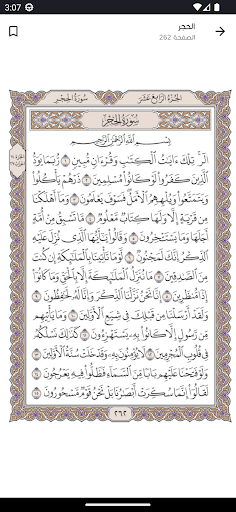 3:07
الحجر
الصفحة 262
الجزء الرابع عشر
سورة الحجر
سورة الحجر
بسم الله الرحمن الرحيم
الر تلك ءايت الكتب وقرءان مبين ١ ربما يود
الذين كفروا لو كانوا مسلمين ٢ ذرهم يأكلوا
ويتمتعوا ويلههم الأمل فسوف يعلمون ٣ وما أهلكنا
من قرية إلا ولها كتاب معلوم ٤ ما تسبق من أمة
أجلها وما يستءخرون ٥ وقالوا يأيها الذي نزل عليه
الذكر إنك لمجنون ٦ لو ما تأتينا بالملئكة إن كنت
من الصدقين ٧ ما ننزل الملئكة إلا بالحق وما كانوا
إذا منظرين ٨ إنا نحن نزلنا الذكر وإنا له لحفظون ٩
ولقد أرسلنا من قبلك في شيع الأولين ١٠ وما يأتيهم
من رسول إلا كانوا به يستهزءون ١١ كذلك نسلكه
في قلوب المجرمين ١٢ لا يؤمنون به وقد خلت سنة الأولين ١٣
ولو فتحنا عليهم بابا من السماء فظلوا فيه يعرجون ١٤
لقالوا إنما سكرت أبصرنا بل نحن قوم مسحورون ١٥
٢٦٢